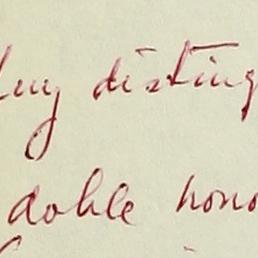 Muy disting
doble hono